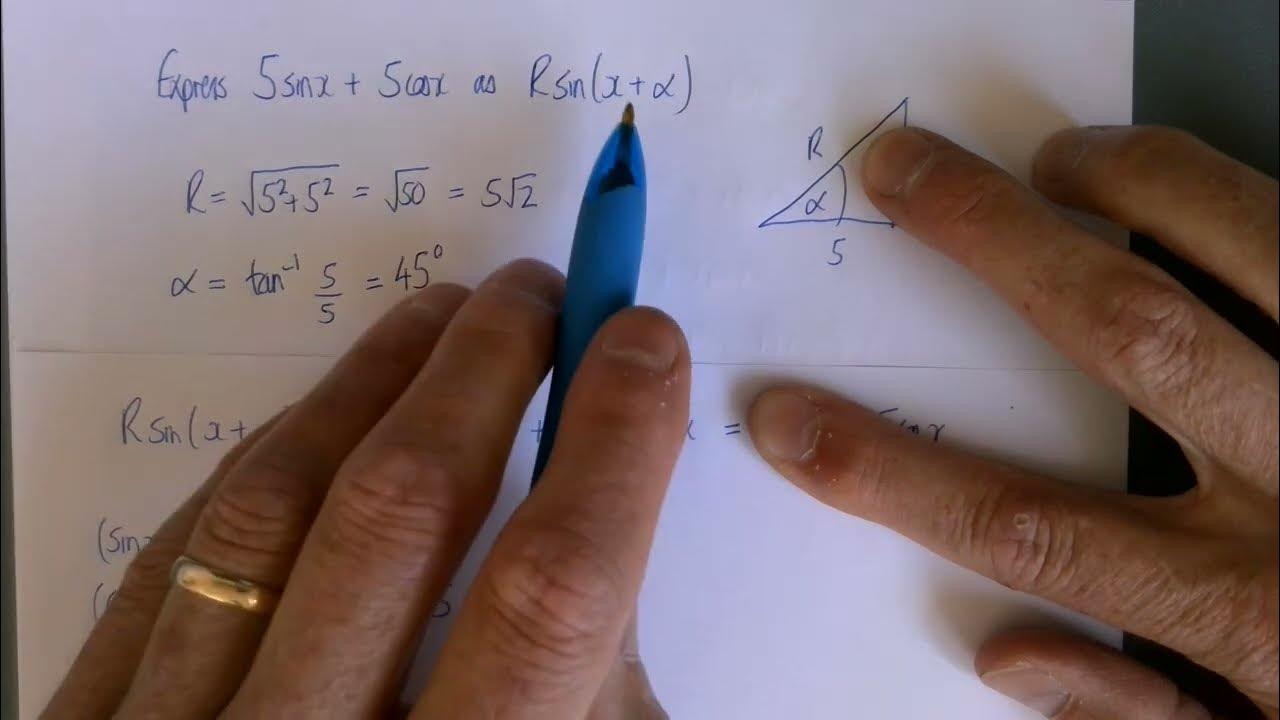 Express 5sinx + 5cosx as Rsin(x + α)
R = √5²+5² = √50 = 5√2
α = tan⁻¹ 5/5 = 45°
R
α
5
Rsin(x+ + =
(sin
(